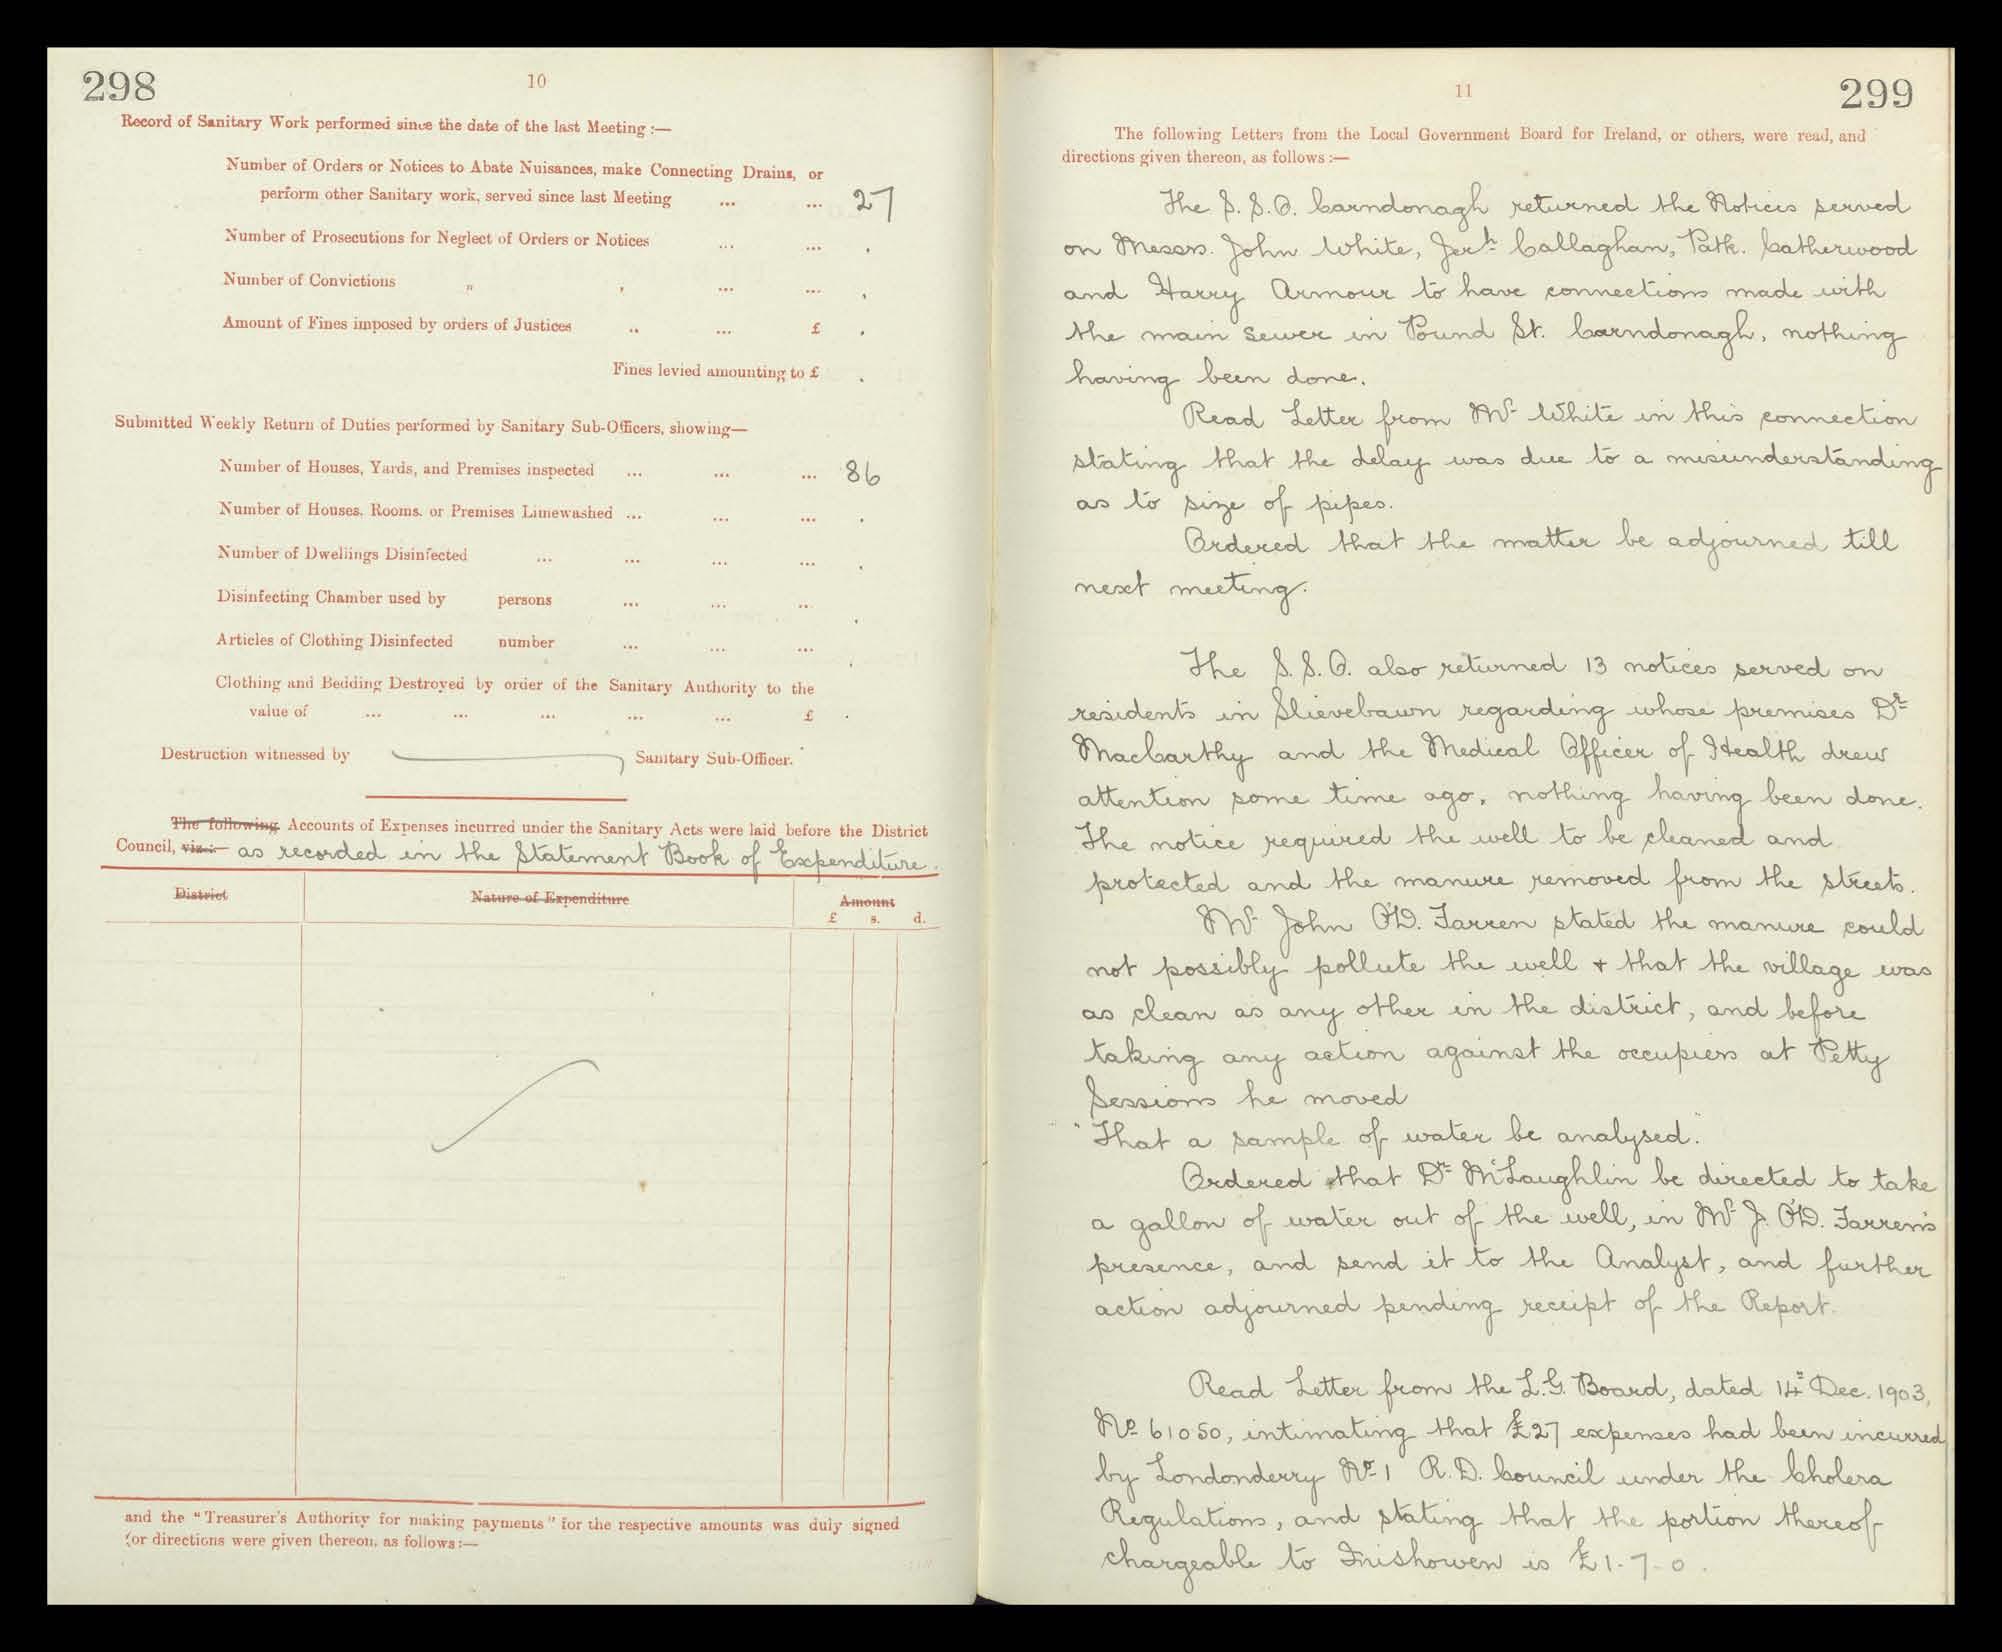 298
10
Record of Sanitary Work performed since the date of the last Meeting :—
Number of Orders or Notices to Abate Nuisances, make Connecting Drains, or
perform other Sanitary work, served since last Meeting ... ... 27
Number of Prosecutions for Neglect of Orders or Notices ... ... .
Number of Convictions „ , ... ... .
Amount of Fines imposed by orders of Justices .. ... £ .
Fines levied amounting to £ .
Submitted Weekly Return of Duties performed by Sanitary Sub-Officers, showing—
Number of Houses, Yards, and Premises inspected ... ... ... 86
Number of Houses, Rooms, or Premises Limewashed ... ... ... .
Number of Dwellings Disinfected ... ... ... ... .
Disinfecting Chamber used by persons ... ... ... .
Articles of Clothing Disinfected number ... ... ... .
Clothing and Bedding Destroyed by order of the Sanitary Authority to the
value of ... ... ... ... ... £ .
Destruction witnessed by Sanitary Sub-Officer.
The following Accounts of Expenses incurred under the Sanitary Acts were laid before the District
Council, viz.:— as recorded in the Statement Book of Expenditure.
District Nature of Expenditure Amount
£ s. d.
and the "Treasurer's Authority for making payments" for the respective amounts was duly signed
(or directions were given thereon, as follows:—
11
299
The following Letters from the Local Government Board for Ireland, or others, were read, and
directions given thereon, as follows :—
The S. S. O. Carndonagh returned the Notices served
on Messrs. John White, Jerh. Callaghan, Patk. Catherwood
and Harry Armour to have connections made with
the main sewer in Pound St. Carndonagh, nothing
having been done.
Read Letter from Mr White in this connection
stating that the delay was due to a misunderstanding
as to size of pipes.
Ordered that the matter be adjourned till
next meeting.
The S. S. O. also returned 13 notices served on
residents in Slievebawn regarding whose premises Dr
MacCarthy and the Medical Officer of Health drew
attention some time ago, nothing having been done.
The notice required the well to be cleaned and
protected and the manure removed from the streets.
Mr John O'D. Farren stated the manure could
not possibly pollute the well & that the village was
as clean as any other in the district, and before
taking any action against the occupiers at Petty
Sessions he moved
"That a sample of water be analysed."
Ordered that Dr McLaughlin be directed to take
a gallon of water out of the well, in Mr J. O'D. Farren's
presence, and send it to the Analyst, and further
action adjourned pending receipt of the Report.
Read Letter from the L.G. Board, dated 14th Dec. 1903,
No 61050, intimating that £27 expenses had been incurred
by Londonderry No 1 R.D. Council under the Cholera
Regulations, and stating that the portion thereof
chargeable to Inishowen is £1-7-0.